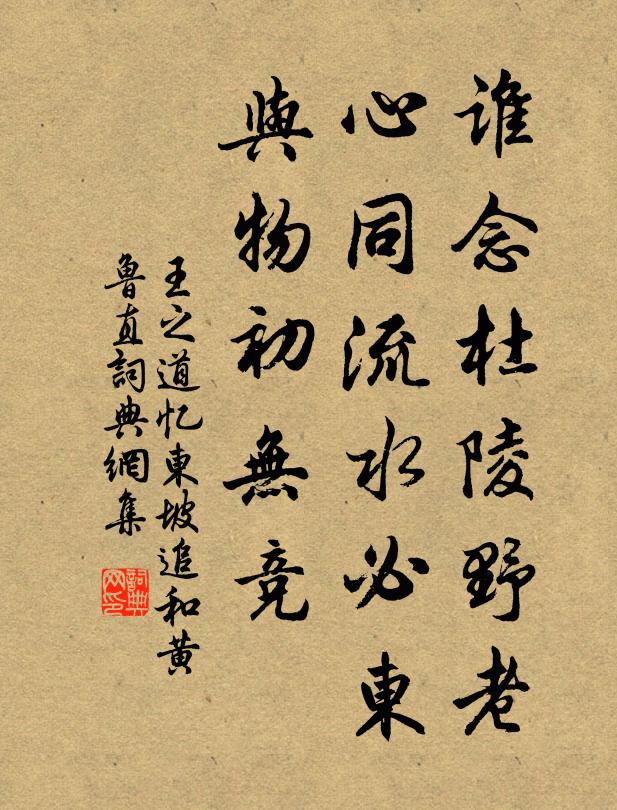 誰念杜陵野老
心同流水必東
與物初無竞
王之道忆東坡追和黄
魯直詞典網集
詞典
网印